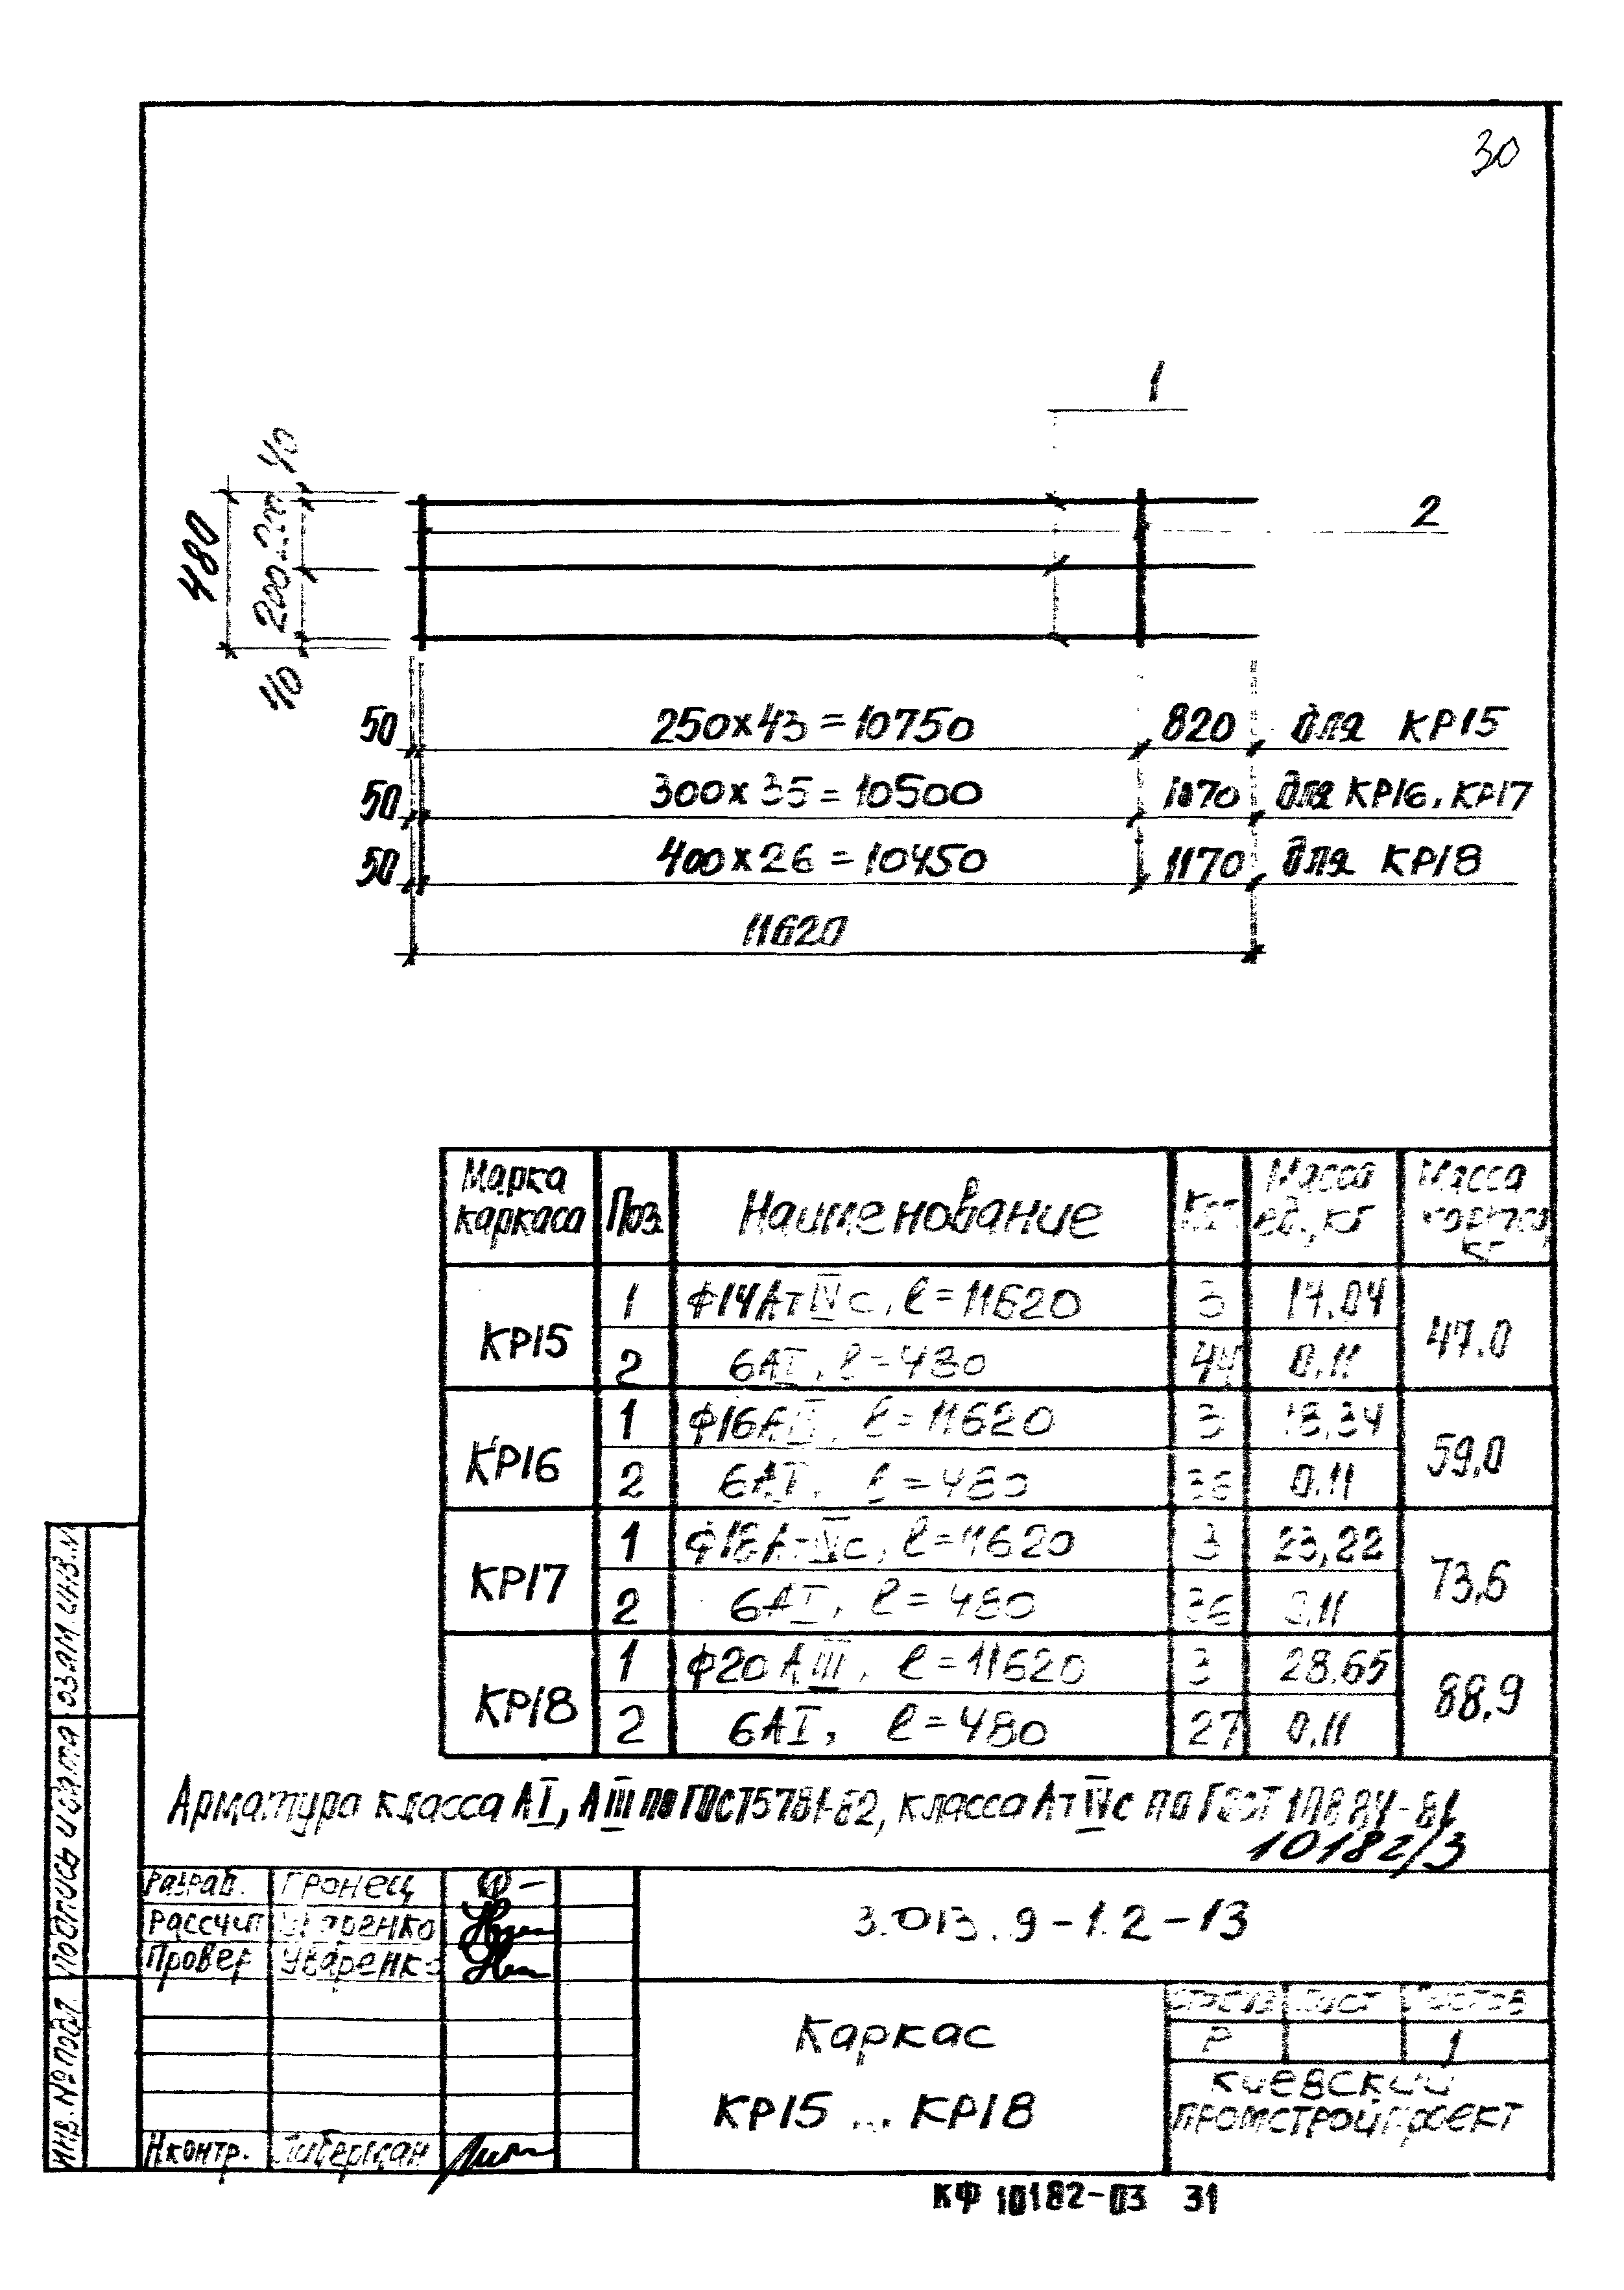 30
1
2
40
480
200
200
40
50 250х43=10750 820 для КР15
50 300х35=10500 1070 для КР16, КР17
50 400х26=10450 1170 для КР18
11620
Марка каркаса Поз. Наименование Кол. Масса ед., кг Масса каркаса, кг
КР15 1 ф14АтIVс, ℓ=11620 3 14.04 47.0
2 6АI, ℓ=480 44 0.11
КР16 1 ф16АIII, ℓ=11620 3 18.34 59.0
2 6АI, ℓ=480 36 0.11
КР17 1 ф18АтIVс, ℓ=11620 3 23,22 73,6
2 6АI, ℓ=480 36 0,11
КР18 1 ф20АIII, ℓ=11620 3 28.65 88,9
2 6АI, ℓ=480 27 0,11
Арматура класса АI, АIII по ГОСТ5781-82, класса АтIVс по ГОСТ 10884-81
10182/3
Разраб. Гронец
Рассчит Уваренко
Провер Уваренко
Н.контр. Либерман
3.013.9-1.2-13
Каркас
КР15 ... КР18
Стадия Лист Листов
Р 1
Киевский
Промстройпроект
Инв.№подл Подпись и дата Взам.инв.№
КФ 10182-03 31